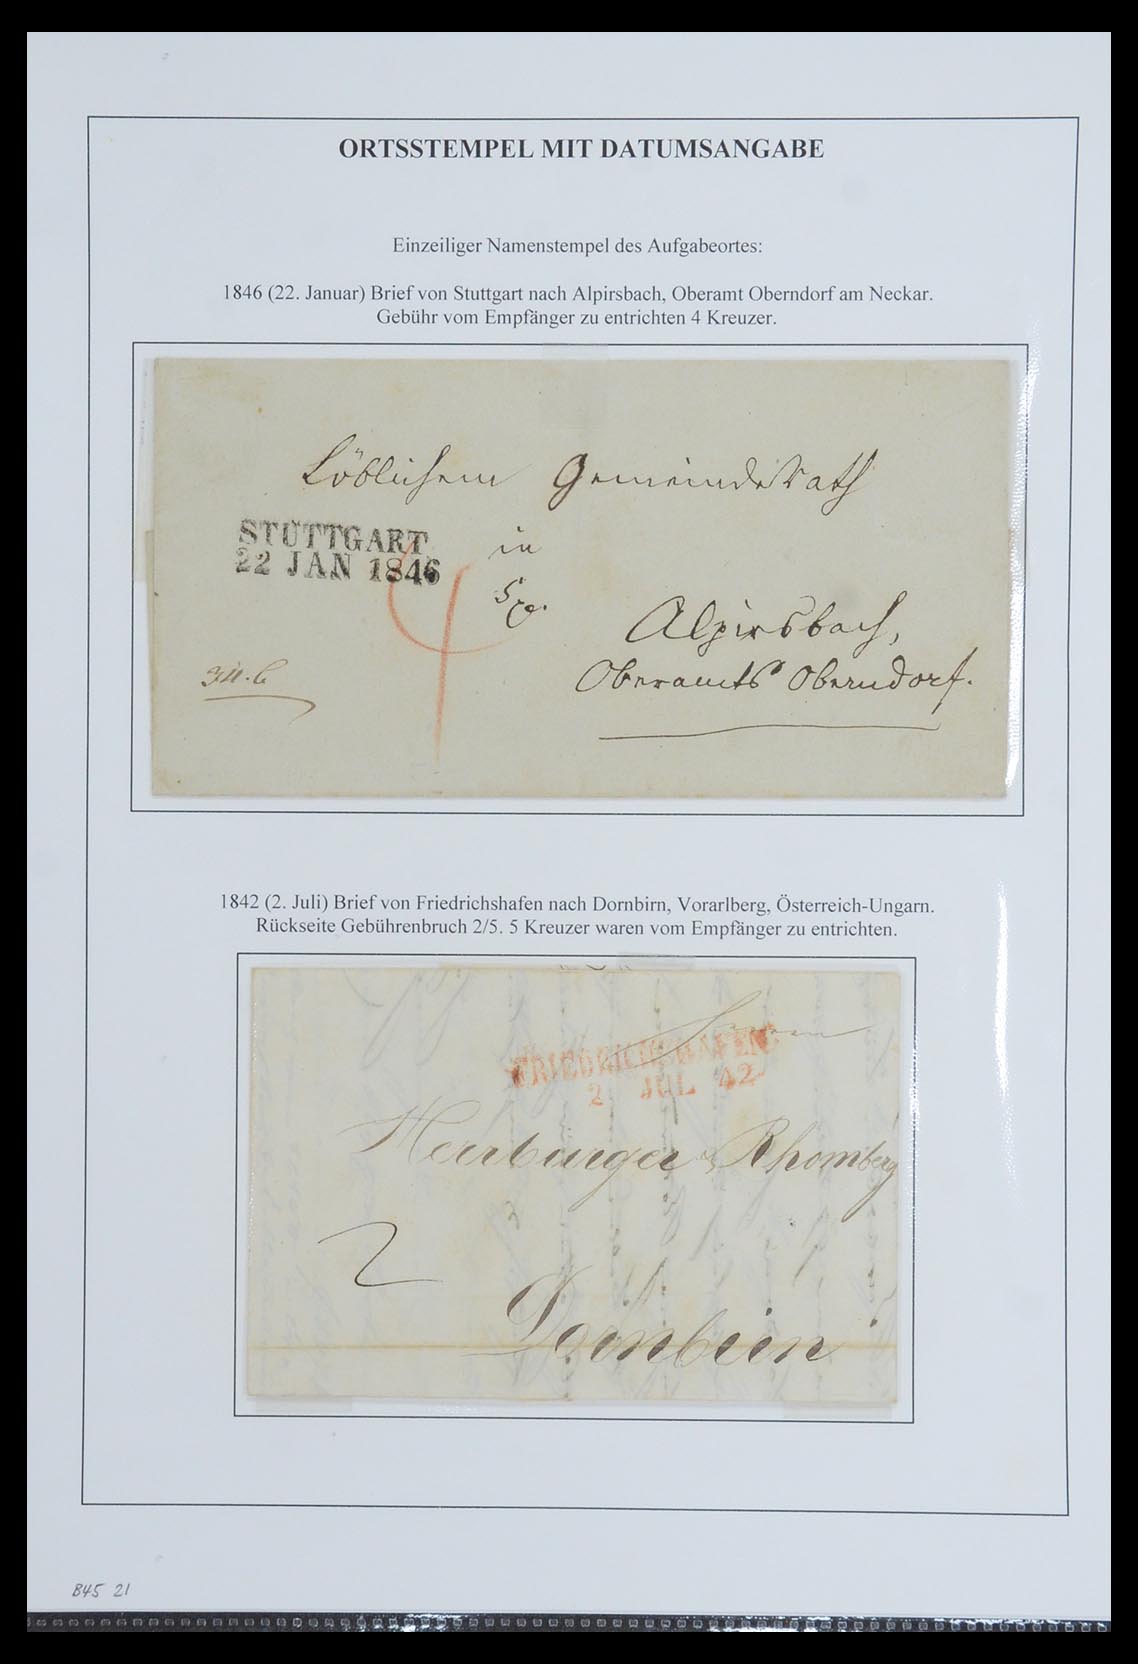 ORTSSTEMPEL MIT DATUMSANGABE
Einzeiliger Namenstempel des Aufgabeortes:
1846 (22. Januar) Brief von Stuttgart nach Alpirsbach, Oberamt Oberndorf am Neckar.
Gebühr vom Empfänger zu entrichten 4 Kreuzer.
Löblichem GemeindeRath
STUTTGART
22 JAN 1846
in
4
Alpirsbach,
Oberamts Oberndorf.
1842 (2. Juli) Brief von Friedrichshafen nach Dornbirn, Vorarlberg, Österreich-Ungarn.
Rückseite Gebührenbruch 2/5. 5 Kreuzer waren vom Empfänger zu entrichten.
Herren
FRIEDRICHSHAFEN
2 JUL 42
Herrburger & Rhomberg
2
Dornbirn
B45 21